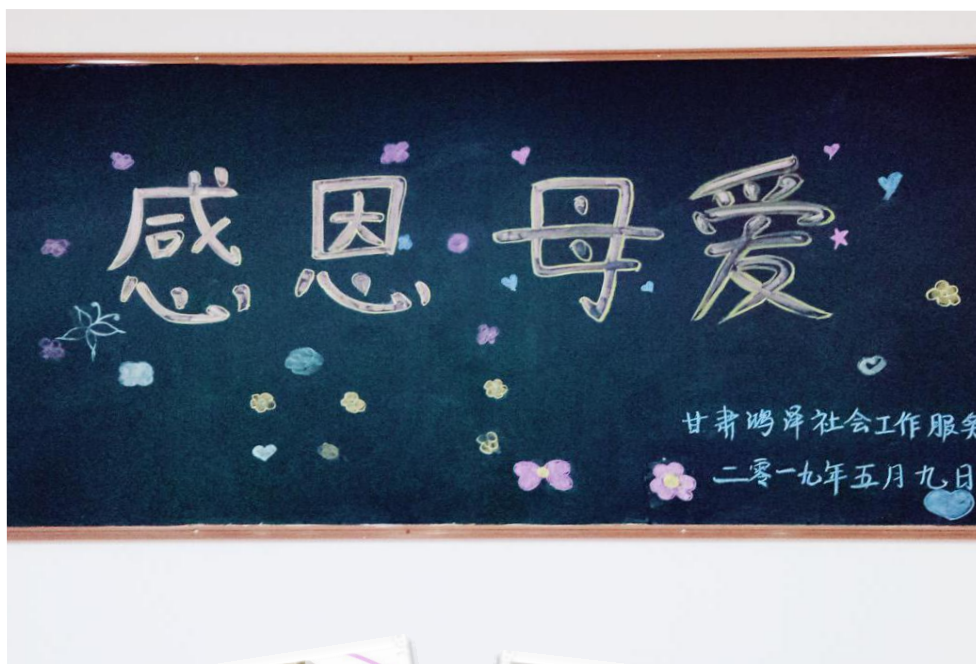 感恩母爱
甘肃鸿泽社会工作服务
二零一九年五月九日